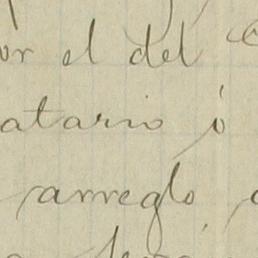 or el del
atario ó
arreglo